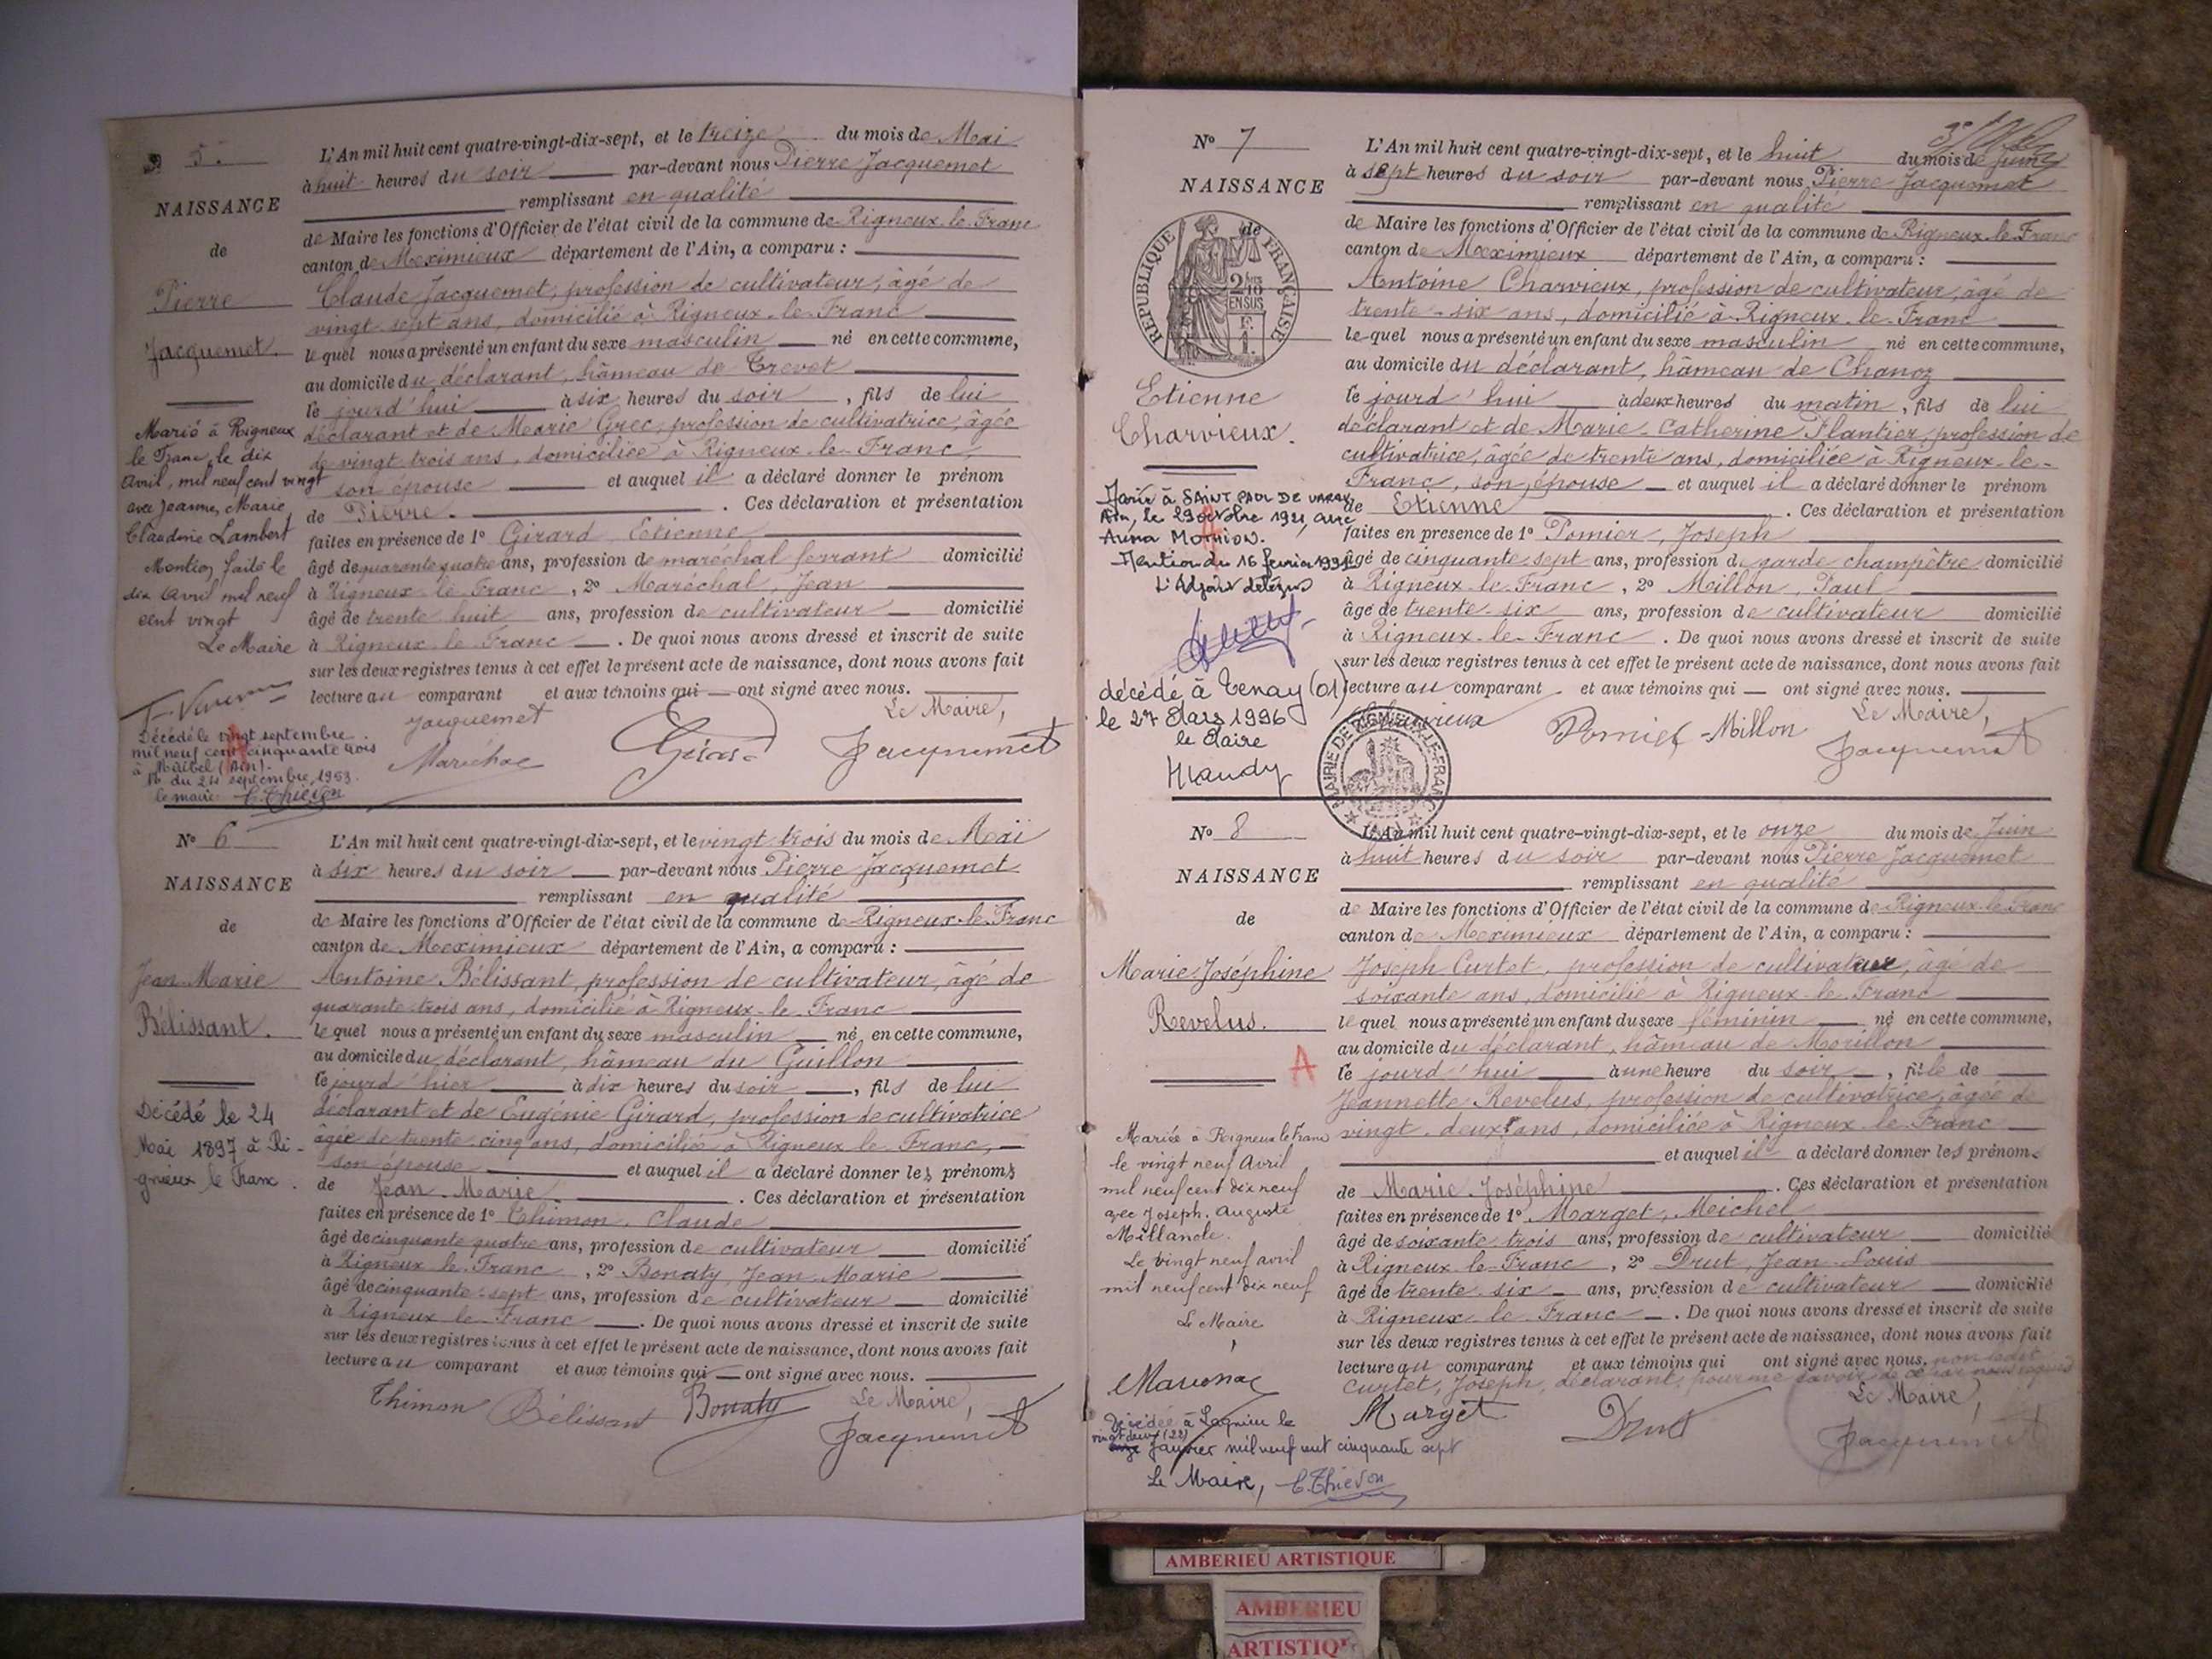 5.
NAISSANCE
de
Pierre
Jacquemet.
Marié à Rigneux
le Franc, le dix
Avril, mil neuf cent vingt
avec Jeanne, Marie,
Claudine Lambert
Mention faite le
dix Avril mil neuf
cent vingt
Le Maire
Décédé le vingt septembre
mil neuf cent cinquante trois
à (Ain).
du 24 septembre 1953.
le maire C. Thievon
L'An mil huit cent quatre-vingt-dix-sept, et le treize du mois de Mai
à huit heures du soir par-devant nous Pierre Jacquemet
remplissant en qualité
de Maire les fonctions d'Officier de l'état civil de la commune de Rigneux-le-Franc
canton de Meximieux département de l'Ain, a comparu :
Claude Jacquemet, profession de cultivateur, âgé de
vingt sept ans, domicilié à Rigneux-le-Franc
le quel nous a présenté un enfant du sexe masculin né en cette commune,
au domicile du déclarant, hâmeau de Crevet
le jourd'hui à six heures du soir, fils de lui
déclarant et de Marie Grec, profession de cultivatrice, âgée
de vingt trois ans, domiciliée à Rigneux-le-Franc,
son épouse et auquel il a déclaré donner le prénom
de Pierre. . Ces déclaration et présentation
faites en présence de 1° Girard Etienne
âgé de quarante quatre ans, profession de maréchal ferrant domicilié
à Rigneux le Franc, 2° Maréchal, Jean
âgé de trente huit ans, profession de cultivateur domicilié
à Rigneux le Franc. De quoi nous avons dressé et inscrit de suite
sur les deux registres tenus à cet effet le présent acte de naissance, dont nous avons fait
lecture au comparant et aux témoins qui ont signé avec nous.
Le Maire,
Jacquemet
Maréchal Girard Jacquemet
N° 6
NAISSANCE
de
Jean Marie
Bélissant.
Décédé le 24
Mai 1897 à Ri-
gneux le Franc.
L'An mil huit cent quatre-vingt-dix-sept, et le vingt trois du mois de Mai
à six heures du soir par-devant nous Pierre Jacquemet
remplissant en qualité
de Maire les fonctions d'Officier de l'état civil de la commune de Rigneux-le-Franc
canton de Meximieux département de l'Ain, a comparu :
Antoine Bélissant, profession de cultivateur, âgé de
quarante trois ans, domicilié à Rigneux-le-Franc
le quel nous a présenté un enfant du sexe masculin né en cette commune,
au domicile du déclarant, hâmeau du Guillon
le jourd'hier à dix heures du soir, fils de lui
déclarant et de Eugénie Girard, profession de cultivatrice
âgée de trente cinq ans, domiciliée à Rigneux le Franc,
son épouse et auquel il a déclaré donner les prénoms
de Jean-Marie. . Ces déclaration et présentation
faites en présence de 1° Thimon Claude
âgé de cinquante quatre ans, profession de cultivateur domicilié
à Rigneux le Franc, 2° Bonaty, Jean Marie
âgé de cinquante-sept ans, profession de cultivateur domicilié
à Rigneux le Franc. De quoi nous avons dressé et inscrit de suite
sur les deux registres tenus à cet effet le présent acte de naissance, dont nous avons fait
lecture au comparant et aux témoins qui ont signé avec nous.
Thimon Bélissant Bonaty Le Maire,
Jacquemet
N° 7
NAISSANCE
de
REPUBLIQUE FRANÇAISE
2/10 EN SUS
Etienne
Charvieux.
Marié à SAINT PAUL DE VARAX
Ain, le 29 octobre 1921, avec
Anna
Mention du 16 février
L'Adjoint délégué
décédé à Tenay (01)
le 27 Mars 1996
le Maire
MAIRIE DE RIGNIEUX-LE-FRANC
L'An mil huit cent quatre-vingt-dix-sept, et le huit du mois de juin
à sept heures du soir par-devant nous Pierre Jacquemet
remplissant en qualité
de Maire les fonctions d'Officier de l'état civil de la commune de Rigneux-le-Franc
canton de Meximieux département de l'Ain, a comparu :
Antoine Charvieux, profession de cultivateur, âgé de
trente-six ans, domicilié à Rigneux-le-Franc
le quel nous a présenté un enfant du sexe masculin né en cette commune,
au domicile du déclarant, hâmeau de Chanoz
le jourd'hui à deux heures du matin, fils de lui
déclarant et de Marie-Catherine Plantier, profession de
cultivatrice, âgée de trente ans, domiciliée à Rigneux-le-
Franc, son épouse et auquel il a déclaré donner le prénom
de Etienne . Ces déclaration et présentation
faites en présence de 1° Pomier, Joseph
âgé de cinquante sept ans, profession de garde champêtre domicilié
à Rigneux le Franc, 2° Millon, Paul
âgé de trente-six ans, profession de cultivateur domicilié
à Rigneux-le-Franc. De quoi nous avons dressé et inscrit de suite
sur les deux registres tenus à cet effet le présent acte de naissance, dont nous avons fait
lecture au comparant et aux témoins qui ont signé avec nous.
Charvieux Pomier Millon Le Maire,
Jacquemet
N° 8
NAISSANCE
de
Marie Joséphine
Revelus.
A
Mariée à Rigneux le Franc
le vingt neuf Avril
mil neuf cent dix neuf
avec Joseph. Auguste
Le vingt neuf avril
mil neuf cent dix neuf
Le Maire
Décédée à Lagnieu le
vingt deux (22)
Janvier mil neuf cent cinquante sept
Le Maire, C. Thievon
L'An mil huit cent quatre-vingt-dix-sept, et le onze du mois de Juin
à huit heures du soir par-devant nous Pierre Jacquemet
remplissant en qualité
de Maire les fonctions d'Officier de l'état civil de la commune de Rigneux-le-Franc
canton de Meximieux département de l'Ain, a comparu :
Joseph Curtet, profession de cultivateur, âgé de
soixante ans, domicilié à Rigneux-le-Franc
le quel nous a présenté un enfant du sexe féminin né en cette commune,
au domicile du déclarant, hâmeau de Morillon
le jourd'hui à une heure du soir, fille de
Jeannette Revelus, profession de cultivatrice, âgée de
vingt-deux ans, domiciliée à Rigneux le Franc
et auquel il a déclaré donner les prénoms
de Marie-Joséphine . Ces déclaration et présentation
faites en présence de 1° Marget, Meichel
âgé de soixante trois ans, profession de cultivateur domicilié
à Rigneux le Franc, 2° Drut, Jean-Louis
âgé de trente-six ans, profession de cultivateur domicilié
à Rigneux le Franc. De quoi nous avons dressé et inscrit de suite
sur les deux registres tenus à cet effet le présent acte de naissance, dont nous avons fait
lecture au comparant et aux témoins qui ont signé avec nous. non ledit
Curtet, Joseph, déclarant, pour ne savoir de ce par nous requis
Le Maire,
Marget Drut Jacquemet
AMBERIEU ARTISTIQUE
AMBERIEU
ARTISTIQUE